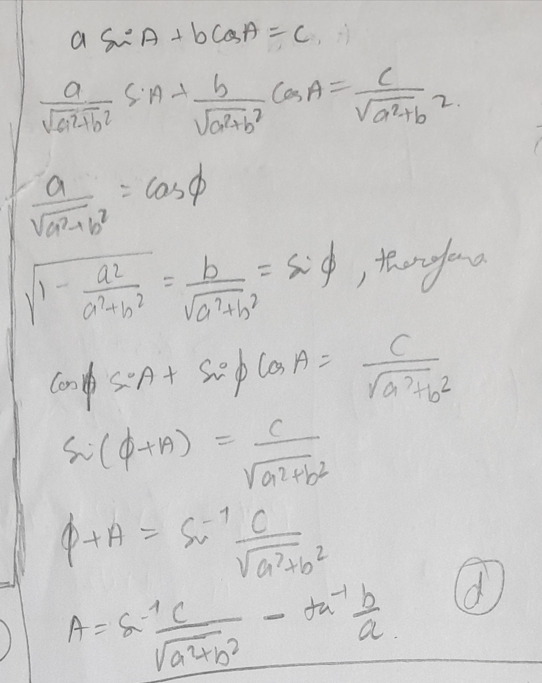 a sin A + b cos A = c.
a/√(a²+b²) sin A + b/√(a²+b²) cos A = c/√(a²+b²).
a/√(a²+b²) = cos ϕ
√(1 - a²/(a²+b²)) = b/√(a²+b²) = sin ϕ, therefore
cos ϕ sin A + sin ϕ cos A = c/√(a²+b²)
sin(ϕ+A) = c/√(a²+b²)
ϕ+A = sin⁻¹ c/√(a²+b²)
A = sin⁻¹ c/√(a²+b²) - tan⁻¹ b/a. (d)